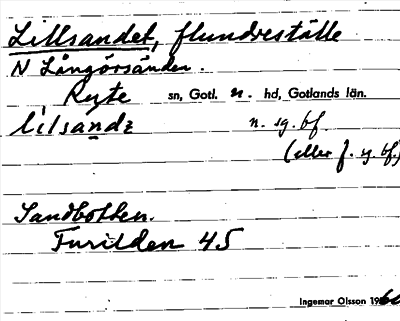 Lillsandet, flundreställe
N Långörsänden.
Rute sn, Gotl. n. hd, Gotlands län.
lilsandə n. sg. bf.
(eller f. sg. bf.)
Sandbotten.
Furilden 45
Ingemar Olsson 1960